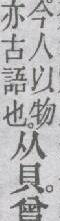 今人以物
亦古語也。从貝。曾